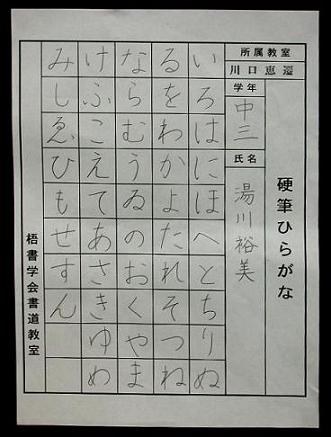 硬筆ひらがな
所属教室
川口
学年
中三
氏名
湯川裕美
いろはにほへとちりぬ
るをわかよたれそつね
ならむうゐのおくやま
けふこえてあさきゆめ
みしゑひもせすん
梧書学会書道教室